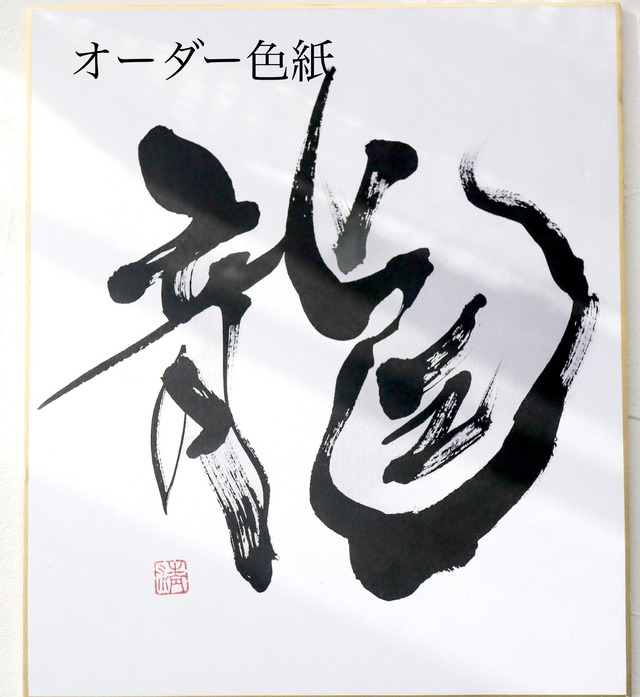 オーダー色紙
龍
清